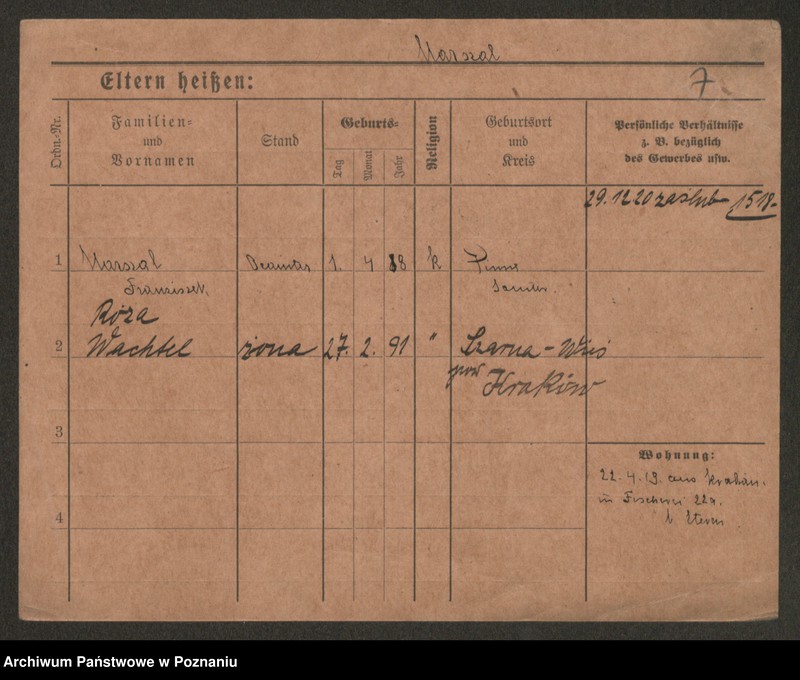 Marszal
Eltern heißen:
7
Ordn.-Nr.
Familien-
und
Vornamen
Stand
Geburts-
Tag
Monat
Jahr
Religion
Geburtsort
und
Kreis
Persönliche Verhältnisse
z. B. bezüglich
des Gewerbes usw.
29.12 20 zaślub 1518-
1 Marszal Beamter 1. 4 88 k Pinne
Franzissek Samter.
Róża
2 Wachtel żona 27. 2. 91 " Czarna-Wieś
pow Kraków
3
Wohnung:
22.4.19. aus Krakau
in Fischerei 22a.
b Eltern
4
Archiwum Państwowe w Poznaniu